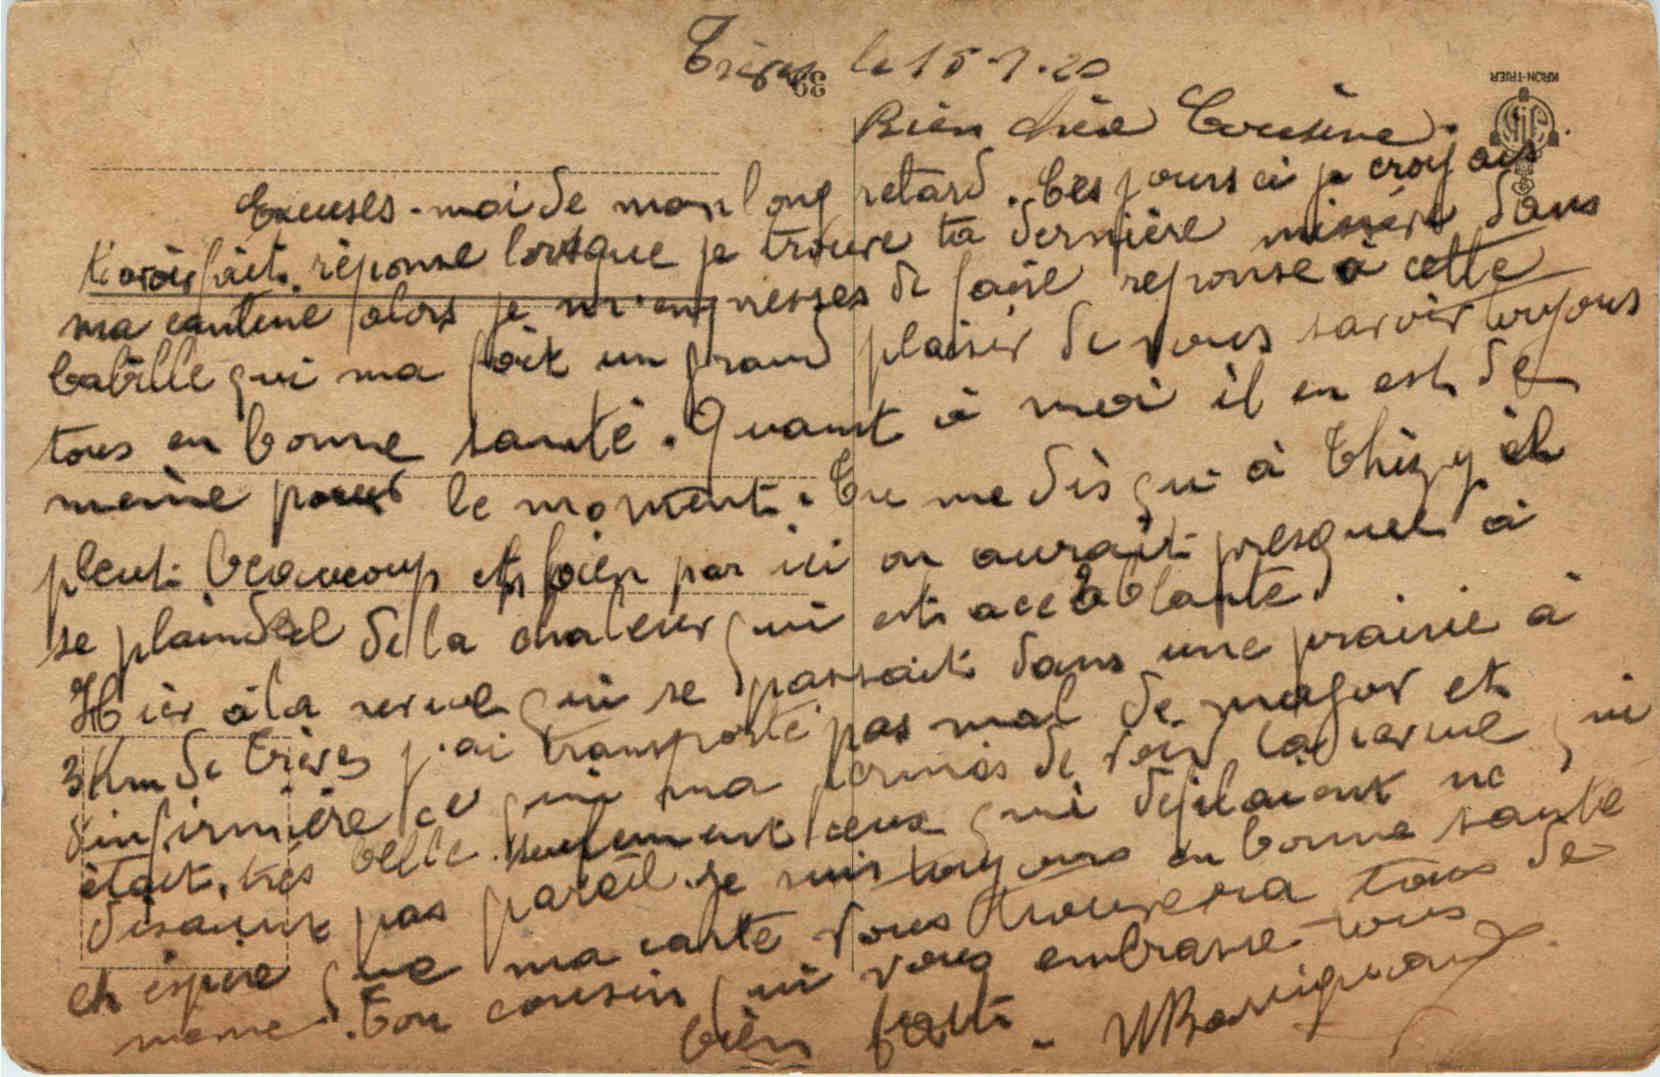 Trèves le 15-7-20
Bien chère Cousine.
Excuses-moi de mon long retard. Ces jours ci je croyais
t'avoir fait réponse lorsque je trouve ta dernière missive dans
ma cantine alors je m'empresses de faire reponse à cette
babille qui ma fait un grand plaisir de vous savoir toujours
tous en bonne santé. Quant à moi il en est de
même pour le moment. Tu me dis qu'à Thizy il
pleut beaucoup eh bien par ici on aurait presque à
se plaindre de la chaleur qui est accablante
Hier à la revue qui se passait dans une prairie à
3 Km de Trèves j'ai transporté pas mal de major et
d'infirmière ce qui ma permis de voir la revue qui
était très belle seulement ceux qui défilaient ne
disaient pas pareil. Je suis toujours en bonne santé
et espère que ma carte vous trouvera tous de
même. Ton cousin qui vous embrasse tous
bien fort.
39
KRON-TRIER